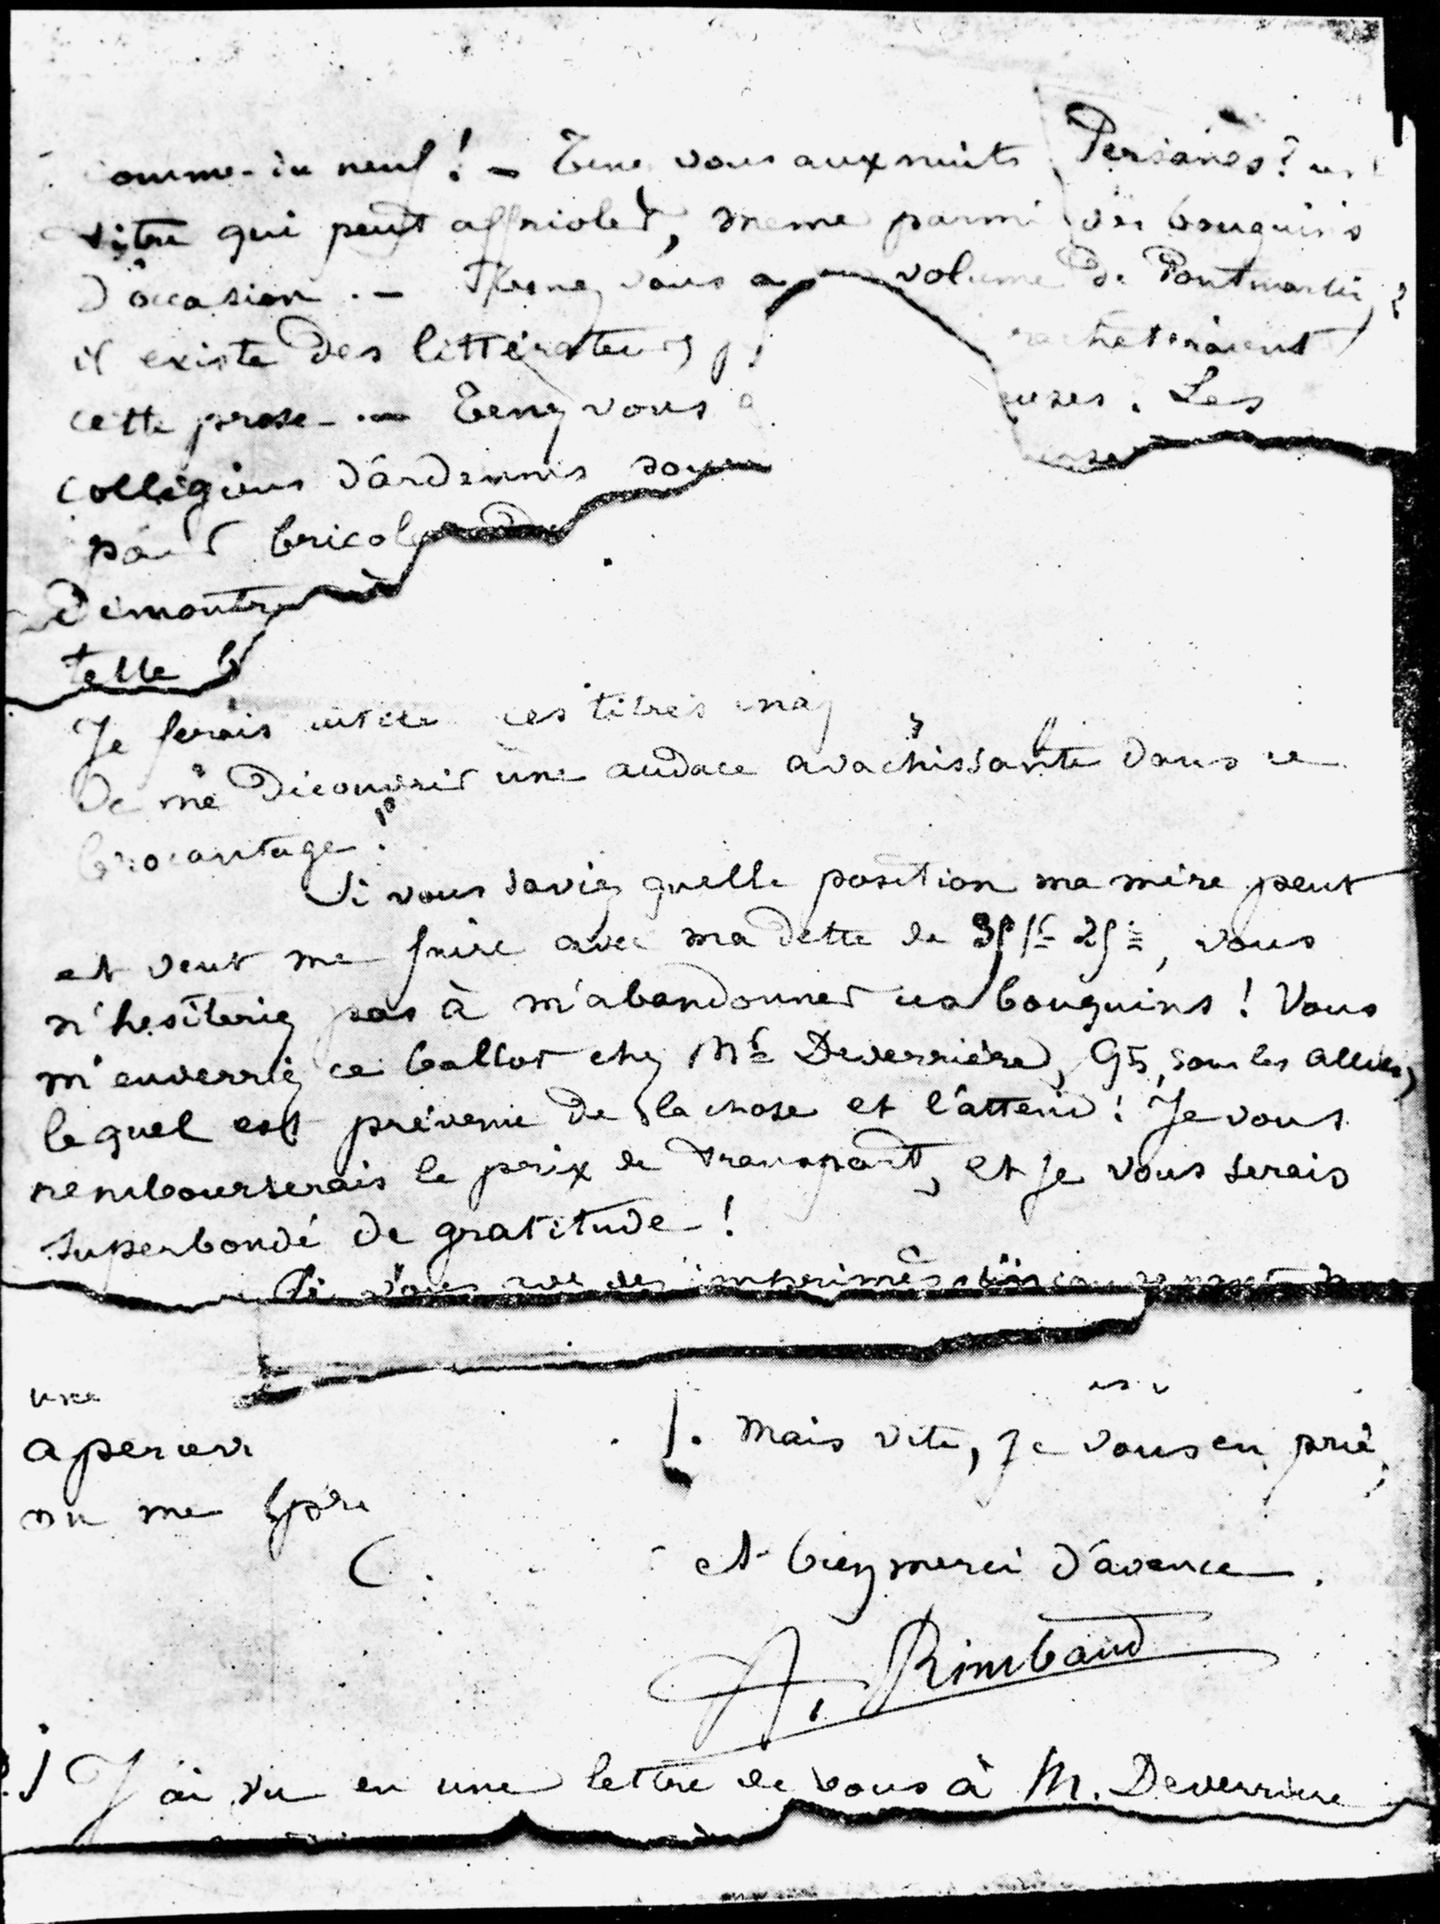 comme du neuf ! — Tenez vous aux nuits Persanes ? un
titre qui peut affrioler, meme parmi des bouquins
d'occasion. — Tenez vous a volume de Pontmartin ?
il existe des littérateurs racheteraient
cette prose. — Tenez vous a euses. Les
collégiens d'ardennes
pour bricoler
démontrer
telle
Je ferais ces titres
De me découvrir une audace avachissante dans ce
brocantage.
Si vous saviez quelle position ma mère peut
et veut me faire avec ma dette de 35 fr 25 c, vous
n'hesiteriez pas à m'abandonner ces bouquins ! Vous
m'enverriez ce ballot chez Mr Deverrière, 95, sous les Allées,
lequel est prévenu de la chose et l'attend ! Je vous
rembourserais le prix de transport, et je vous serais
superbondé de gratitude !
Si vous avez des imprimés
apercev
on me
Mais vite, je vous en prie,
et bien merci d'avance.
A. Rimbaud
J'ai vu en une lettre de vous à M. Deverriere